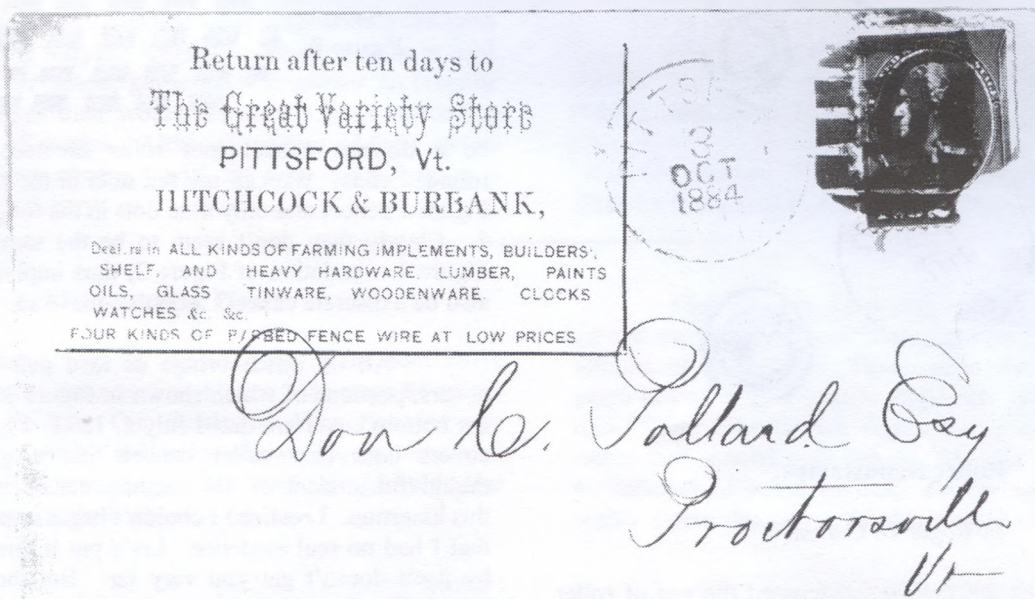 Return after ten days to
The Great Variety Store
PITTSFORD, Vt.
HITCHCOCK & BURBANK,
Dealers in ALL KINDS OF FARMING IMPLEMENTS, BUILDERS',
SHELF, AND HEAVY HARDWARE, LUMBER, PAINTS
OILS, GLASS TINWARE, WOODENWARE, CLOCKS
WATCHES &c. &c.
FOUR KINDS OF BARBED FENCE WIRE AT LOW PRICES
3
OCT
1884
Don C. Pollard Esq
Proctorsville
Vt